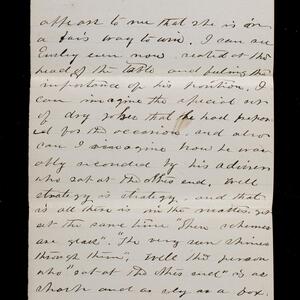 appear to me that she is in
a fair way to win. I can see
Emley even now seated at the
head of the table and feeling the
importance of his position. I
can imagine the special set
of dry jokes that he had prepar-
ed for the occasion. and also
can I imagine how he was
ably seconded by his adviser
who sat at the other end. Well
strategy is strategy, and that
is all there is in the matter. yet
at the same time "Their schemes
are glass". "The very sun shines
through them", Well the person
who "sat at the other end" is as
sharp and as sly as a box.